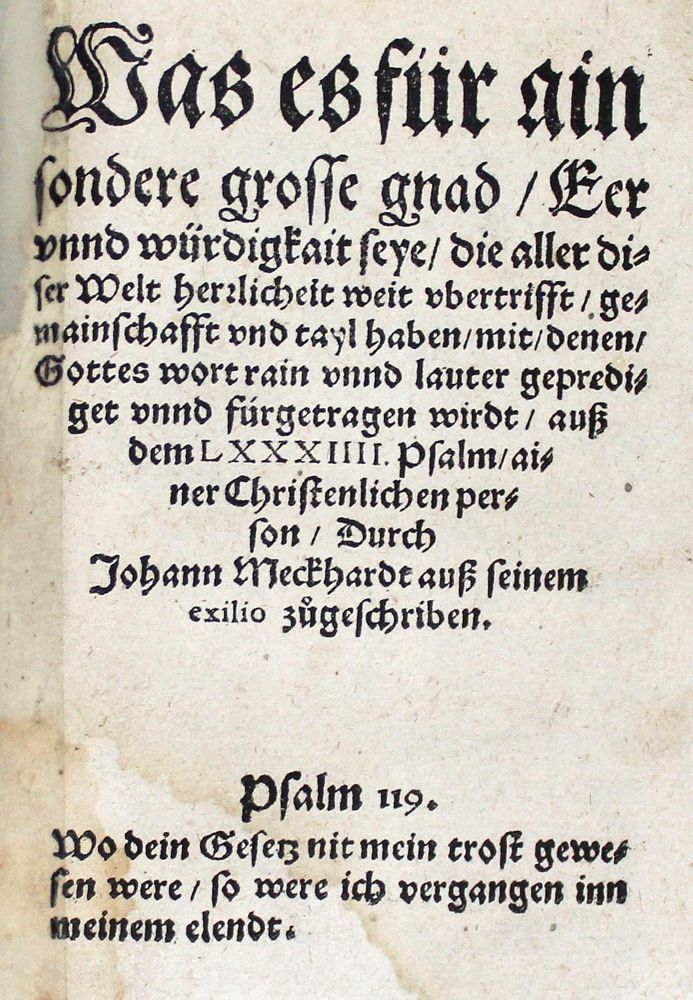 Was es für ain
sondere grosse gnad / Eer
vnnd würdigkait seye / die aller di⸗
ser Welt herꝛlicheit weit vbertrifft / ge⸗
mainschafft vnd tayl haben / mit / denen /
Gottes wort rain vnnd lauter gepredi⸗
get vnnd fürgetragen wirdt / auß
dem LXXXIIII. Psalm / ai⸗
ner Christenlichen per⸗
son / Durch
Johann Meckhardt auß seinem
exilio zůgeschriben.
Psalm 119.
Wo dein Gesetz nit mein trost gewe⸗
sen were / so were ich vergangen inn
meinem elendt.